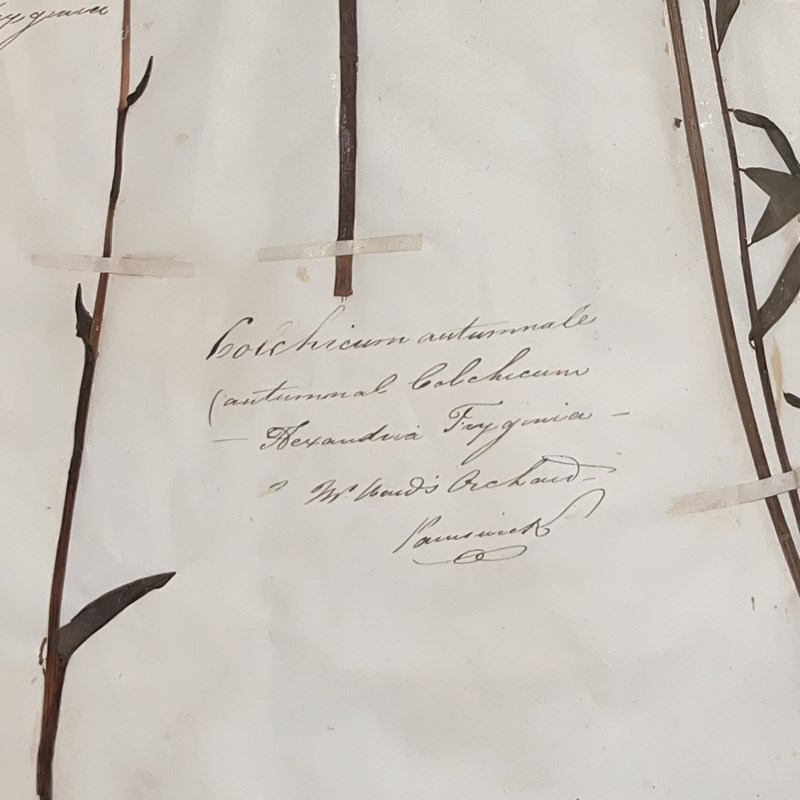 gynia
Colchicum autumnale
(autumnal Colchicum
— Hexandria Trygynia —
Mr Ward's Orchard -
Painswick